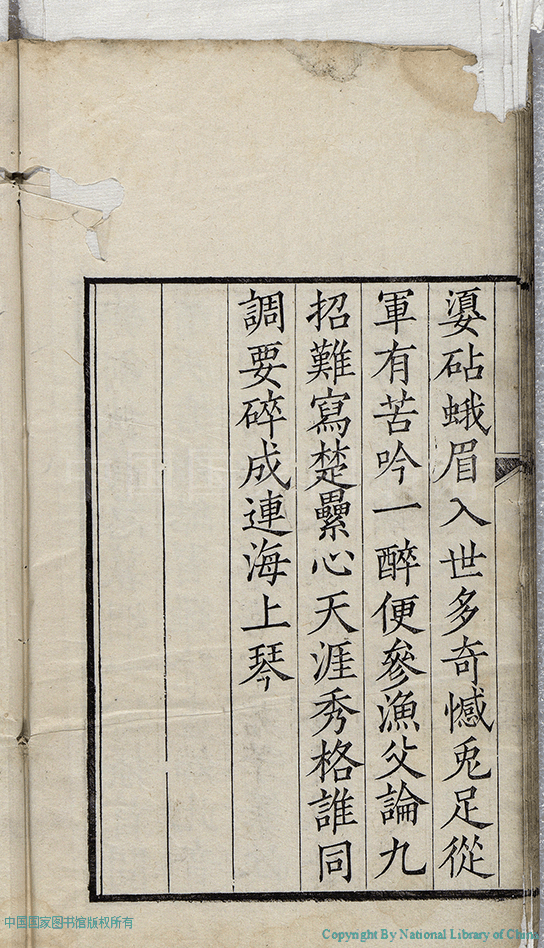 玷蛾眉入世多奇憾兎足從
軍有苦吟一醉便參漁父論九
招難寫楚纍心天涯秀格誰同
調要碎成連海上琴
中国国家图书馆版权所有
Copyright By National Library of China